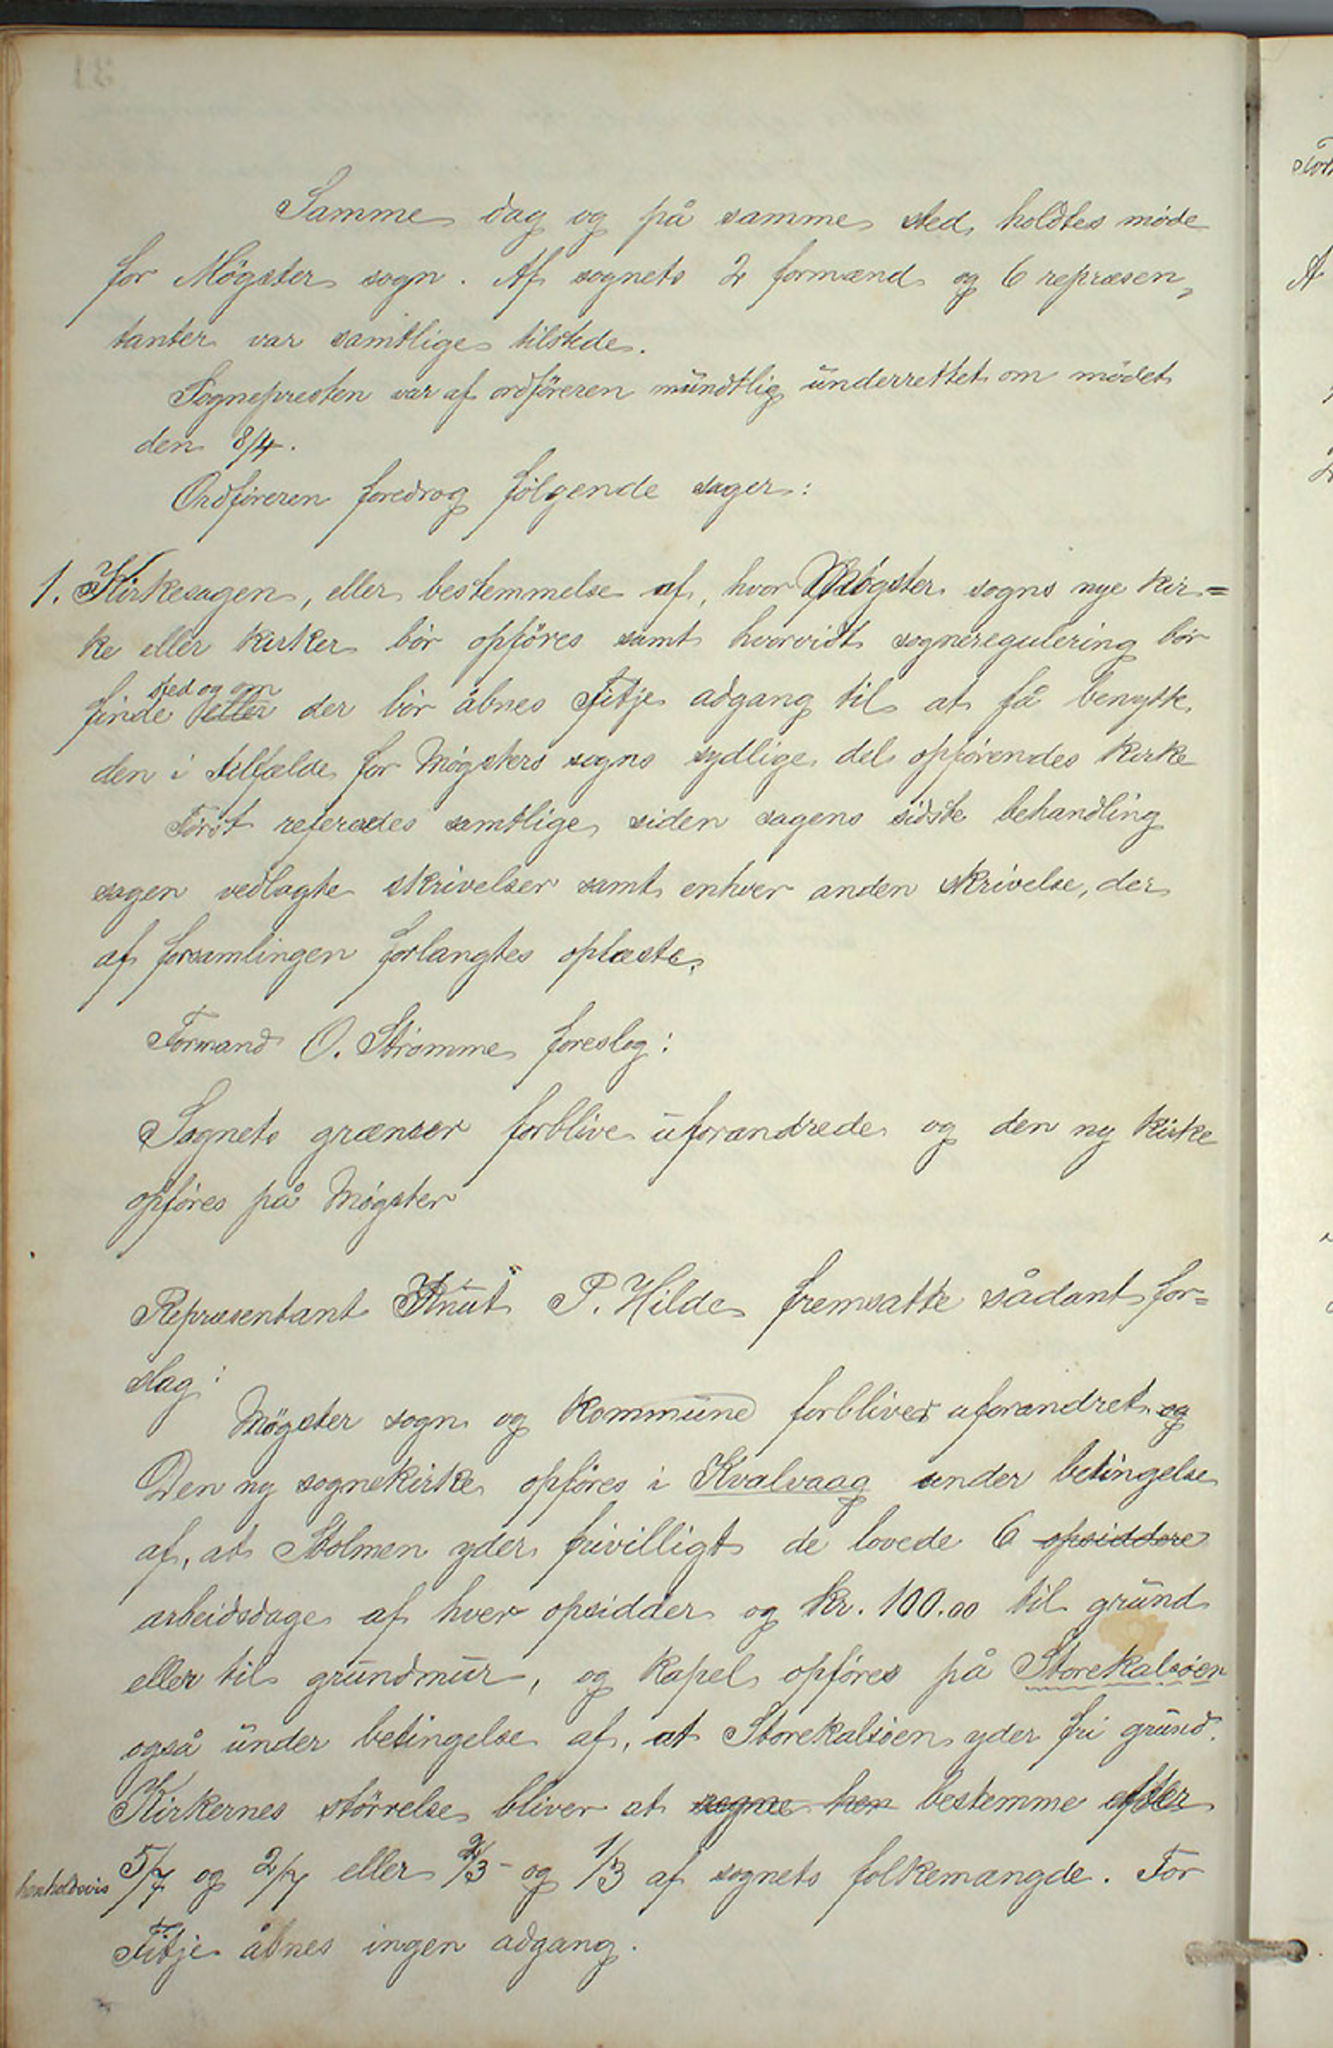 Samme dag og på samme sted holdtes møde
for Møgster sogn. Af sognets 2 formænd og 6 repræsen,
tanter var samtlige tilstede.
Sognepresten var af ordføreren mundtlig underrettet om mødet
den 8/4.
Ordføreren foredrog følgende sager:
1. Kirkesagen, eller bestemmelse af, hvor Møgster sogns nye kir=
ke eller kirker bör opføres samt hvorvidt sogneregulering bör
sted og om
finde eller der bör åbnes Fitje adgang til at få benytte
den i tilfælde for Møgsters sogns sydlige del opførendes kirke
Først refereredes samtlige siden sagens sidste behandling
sagen vedlagte skrivelser samt enhver anden skrivelse, der
af forsamlingen forlangtes oplæste.
Formand O. Strømme foreslog:
Sognets grænser forblive uforandrede og den ny kirke
opføres på Møgster
Repræsentant Knut P. Hilde fremsatte sådant for=
slag:
Møgster sogn og kommune forbliver uforandret og
Den ny sognekirke opføres i Kvalvaag under betingelse
af, at Stolmen yder frivilligt de lovede 6 opsiddere
arbeidsdage af hver opsidder og kr. 100.00 til grund
eller til grundmur, og kapel opføres på Storekalsøen
også under betingelse af, at Storekalsøen yder fri grund.
Kirkernes størrelse bliver at regne hen bestemme efter
henholdsvis 5/7 og 2/7 eller 2/3 og 1/3 af sognets folkemængde. For
Fitje åbnes ingen adgang.